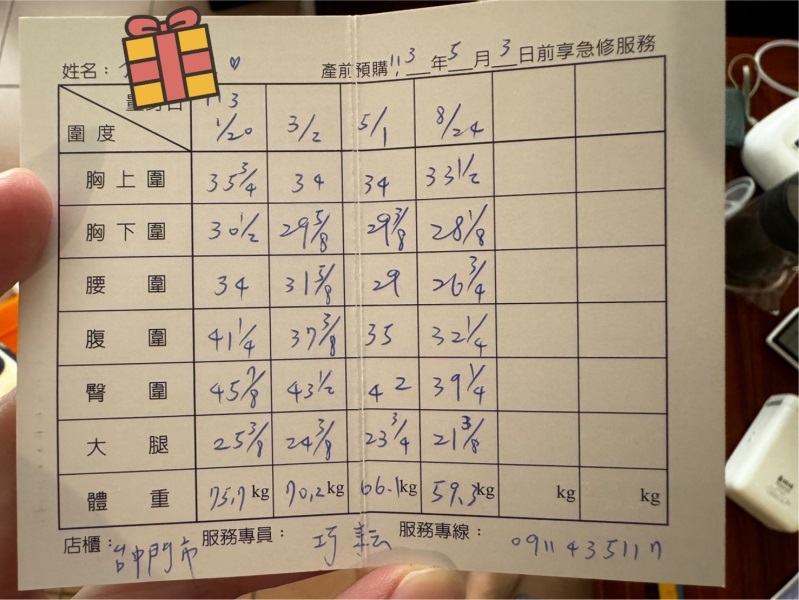 姓名： ♡ 產前預購113年5月3日前享急修服務
圍度 113 1/20 3/2 5/1 8/24
胸上圍 35 3/4 34 34 33 1/2
胸下圍 30 1/2 29 5/8 29 3/8 28 1/8
腰圍 34 31 5/8 29 26 3/4
腹圍 41 1/4 37 3/8 35 32 1/4
臀圍 45 7/8 43 1/2 42 39 1/4
大腿 25 3/8 24 3/8 23 3/4 21 3/8
體重 75.7kg 70.2kg 66.1kg 59.3kg kg kg
店櫃：台中門市 服務專員：巧耘 服務專線：0911435117